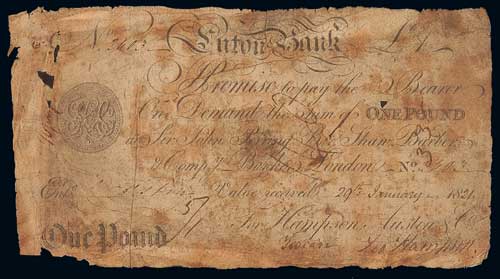 No. 3403 Luton Bank £1
I Promise to pay the Bearer
On Demand the Sum of ONE POUND
at Sir John Perring Bt. Shaw, Barber
& Compy. Bankers London No. 3403
Value received 29th January 1821
For Hampson, Austen & Co.
One Pound
Entd.